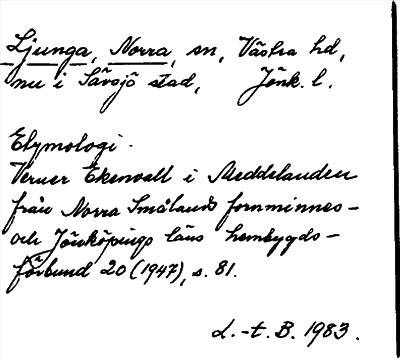 Ljunga, Norra, sn, Västra hd,
nu i Sävsjö stad, Jönk. l.
Etymologi.
Verner Ekenvall i Meddelanden
från Norra Smålands fornminnes-
och Jönköpings läns hembygds-
förbund 20 (1947), s. 81.
L.-t. B. 1983.